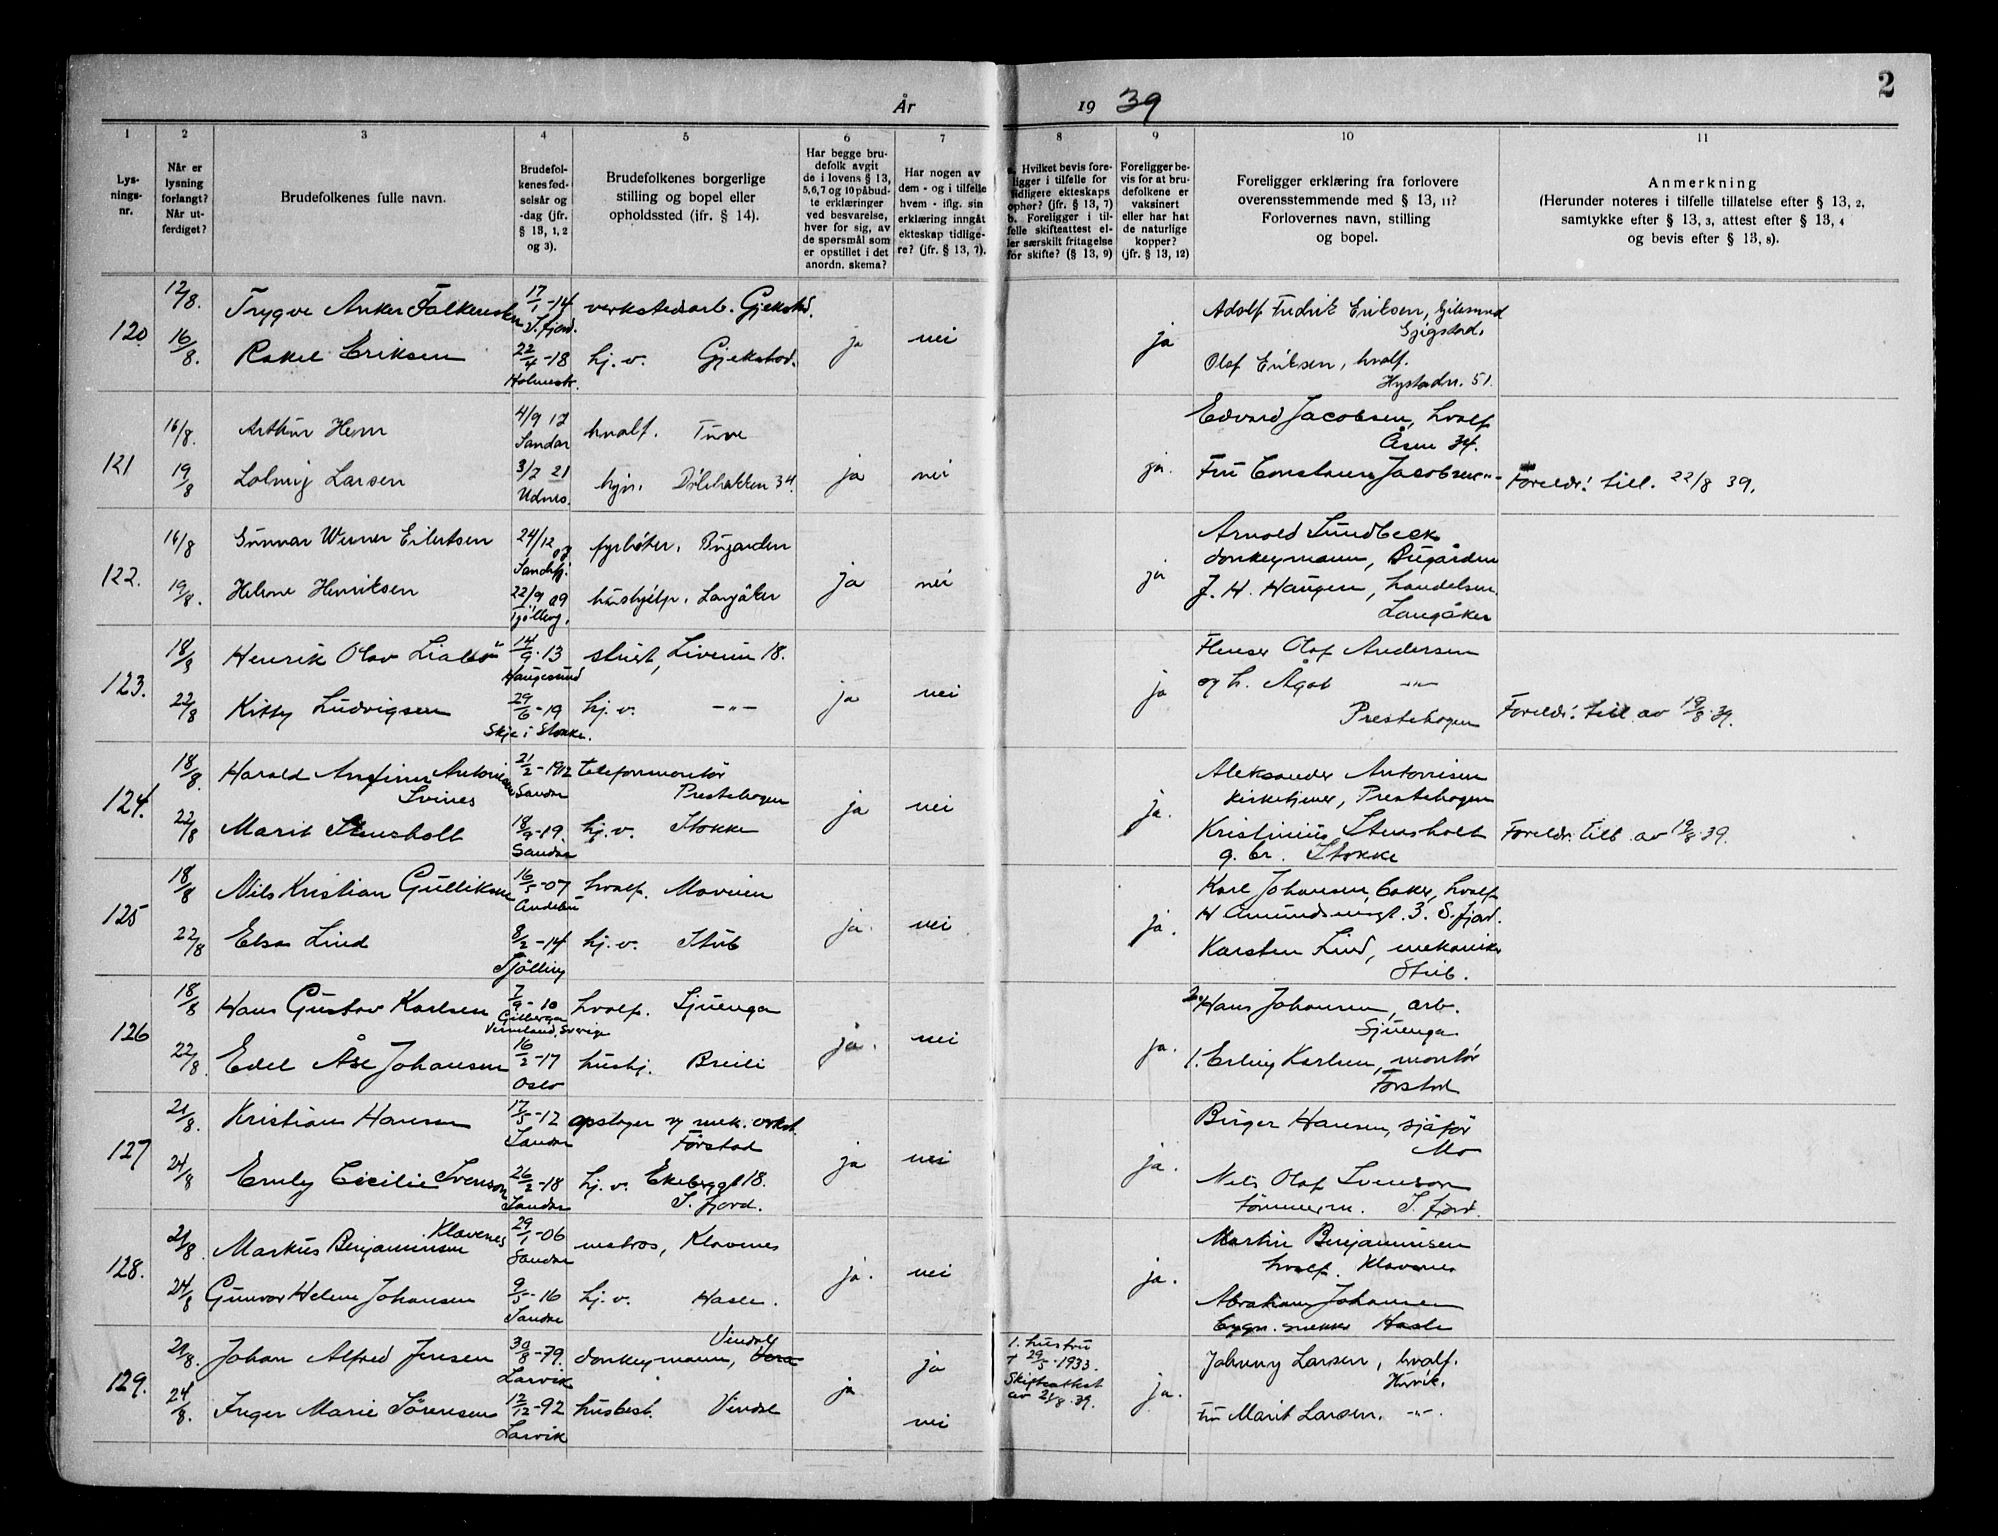 År 19 39
2
1 2 3 4 5 6 7 8 9 10 11
Lys-
nings-
nr.
Når er
lysning
forlangt?
Når ut-
ferdiget?
Brudefolkenes fulle navn.
Brudefol-
kenes fød-
selsår og
-dag (jfr.
§ 13, 1, 2
og 3).
Brudefolkenes borgerlige
stilling og bopel eller
opholdssted (ifr. § 14).
Har begge bru-
defolk avgit
de i lovens § 13,
5,6,7 og 10 påbud-
te erklæringer
ved besvarelse,
hver for sig, av
de spørsmål som
er opstillet i det
anordn. skema?
Har nogen av
dem - og i tilfelle
hvem - iflg. sin
erklæring inngått
ekteskap tidlige-
re? (jfr. § 13, 7).
a. Hvilket bevis fore-
ligger i tilfelle for
tidligere ekteskaps
ophør? (jfr. § 13, 7)
b. Foreligger i til-
felle skifteattest el-
ler særskilt fritagelse
for skifte? (§ 13, 9)
Foreligger be-
vis for at bru-
defolkene er
vaksinert
eller har hat
de naturlige
kopper?
(jfr. § 13, 12)
Foreligger erklæring fra forlovere
overensstemmende med § 13, 11?
Forlovernes navn, stilling
og bopel.
Anmerkning
(Herunder noteres i tilfelle tillatelse efter § 13, 2,
samtykke efter § 13, 3, attest efter § 13, 4
og bevis efter § 13, 8).
120.
12/8. Trygve Anker Falkensten 17/1-14 S.fjord. verkstedsarb. Gjekstad.
16/8. Rakel Eriksen 22/4-18 Holmestr. hj.v. Gjekstad.
ja nei ja
Adolf Fredrik Eriksen,
Gjigstad.
Olaf Eriksen, hvalf.
Hystadv. 51.
121
16/8. Arthur Hem 4/9 12 Sandar hvalf. Tuve
19/8 Solveig Larsen 3/2 21 Udnes. hjv. Dölebakken 34.
ja nei ja.
Edvard Jacobsen, hvalf
Åsm 34.
Fru Constance Jacobsen -"-
Foreldr! till. 22/8 39.
122.
16/8 Gunvar Werner Eilertsen 24/12 09 Sandefj. fyrbøter, Bugården
19/8. Helene Henriksen 22/9 09 Tjölling. hushjelp, Langåker
ja nei ja
Arnold Sundbeck
donkeymann, Bugården
J. H. Haugen, handelsm.
Langåker
123.
18/8 Henrik Olav Liabö 14/9-13 Haugesund stuert, Liveien 18.
22/8 Kitty Ludvigsen 29/6-19 Skje i Stokke. hj.v. -"-
ja nei ja
Flenser Olaf Andersen
og h. Ågot -"-
Prestehagen
Foreldr! till av 19/8-39.
124.
18/8. Harald Arnfinn Antonisen
Svines 21/2-1912 Sandar telefonmontör
Prestehagen
22/8 Marit Stensholt 18/9-19. Sandar hj.v. Stokke
ja nei ja.
Aleksander Antonisen
kirketjener, Prestehagen
Kristinius Stensholt
g.br. Stokke
Foreldr. till av 19/8-39.
125
18/8 Nils Kristian Gulliksen 16/5-07 Andebu hvalf. Moveien
22/8 Elsa Lind 8/2-14 Tjölling hj.v. Stub
ja. nei ja.
Karl Johansen, baker, hvalf
H Amundsensgt. 3. S.fjord.
Karsten Lind, mekaniker
Stub.
126
18/8 Hans Gustav Karlsen 7/9-10 Gillberga Vermland, Sverige hvalf. Sjuenga
22/8. Edel Åse Johansen 16/2-17 Oslo hushj. Breili
ja. nei ja.
2. Hans Johansen, arb.
Sjuenga
1. Erling Karlsen, montör
Forstad
127
21/8. Kristian Hansen 17/5-12 Sandar opslager v mek. verkst.
Forstad
24/8 Emly Cecilie Svenson 26/2-18 Sandar hj.v. Ekeberggt 18.
S.fjord.
ja nei ja.
Birger Hansen, sjåför
Mo
Nils Olaf Svenson
tömmerm. S.fjord.
128.
21/8. Markus Benjaminsen Klavenes 29/1-06 Sandar matros, Klavenes
24/8 Gunvor Helene Johansen 9/5-16 Sandar hj.v. Hasle.
ja. nei ja.
Martin Benjaminsen
hvalf. Klavenes
Abraham Johansen
bygn. snekker Hasle
129.
21/8. Johan Alfred Jensen 30/8-79. Larvik donkeymann, Vindal
24/8. Inger Marie Sörensen 12/12-92 Larvik husbest. Vindal
ja ja nei
1. hustru
† 29/5-1933.
Skifteattest
av 21/8-39.
ja.
Johnny Larsen, hvalf.
Fru Marit Larsen. -"-